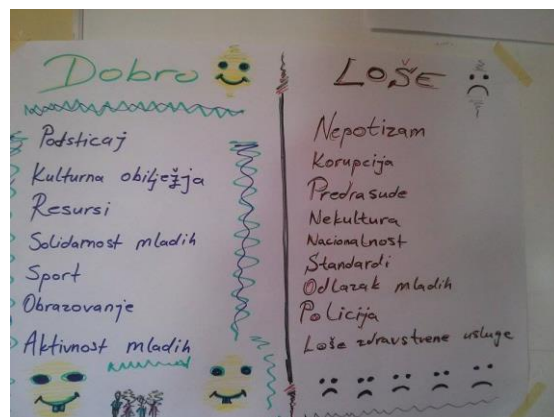 Dobro
Podsticaj
Kulturna obilježja
Resursi
Solidarnost mladih
Sport
Obrazovanje
Aktivnost mladih
LOŠE
Nepotizam
Korupcija
Predrasude
Nekultura
Nacionalnost
Standardi
Odlazak mladih
Policija
Loše zdravstvene usluge